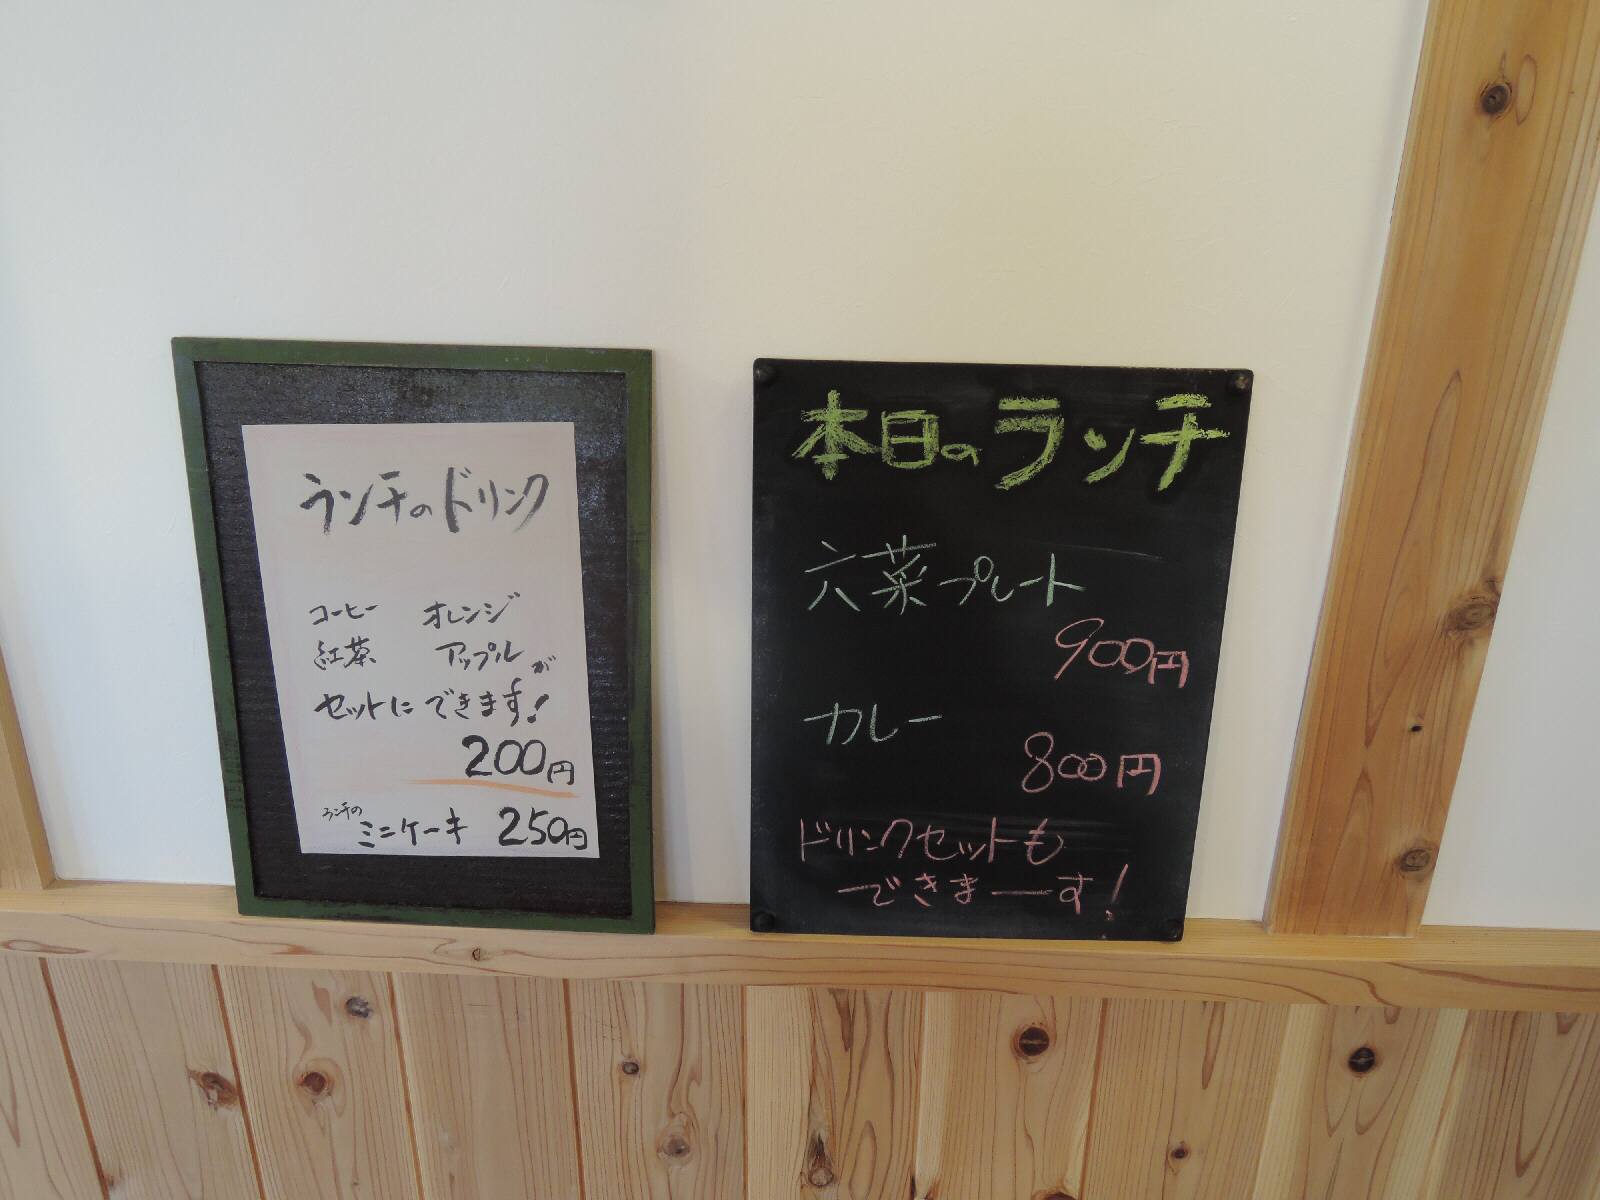 ランチのドリンク
コーヒー オレンジ
紅茶 アップルが
セットにできます!
200円
ランチの
ミニケーキ 250円
本日のランチ
六菜プレート
900円
カレー
800円
ドリンクセットも
できまーす!